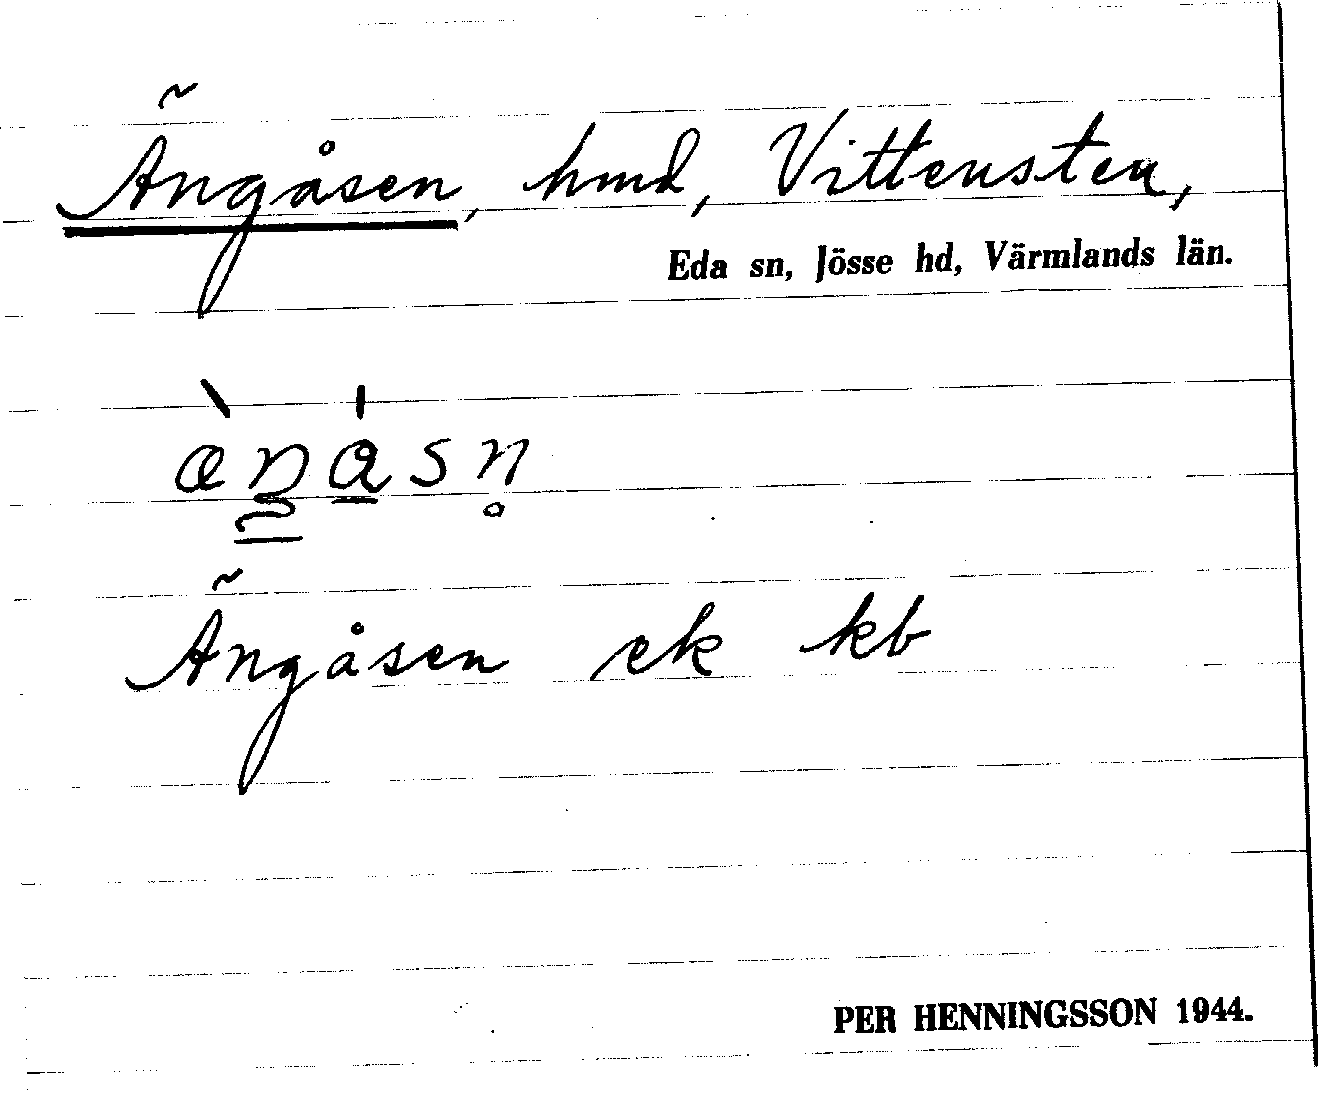 Ängåsen, hmd, Vittensten,
Eda sn, Jösse hd, Värmlands län.
Ängåsen ek kb
PER HENNINGSSON 1944.